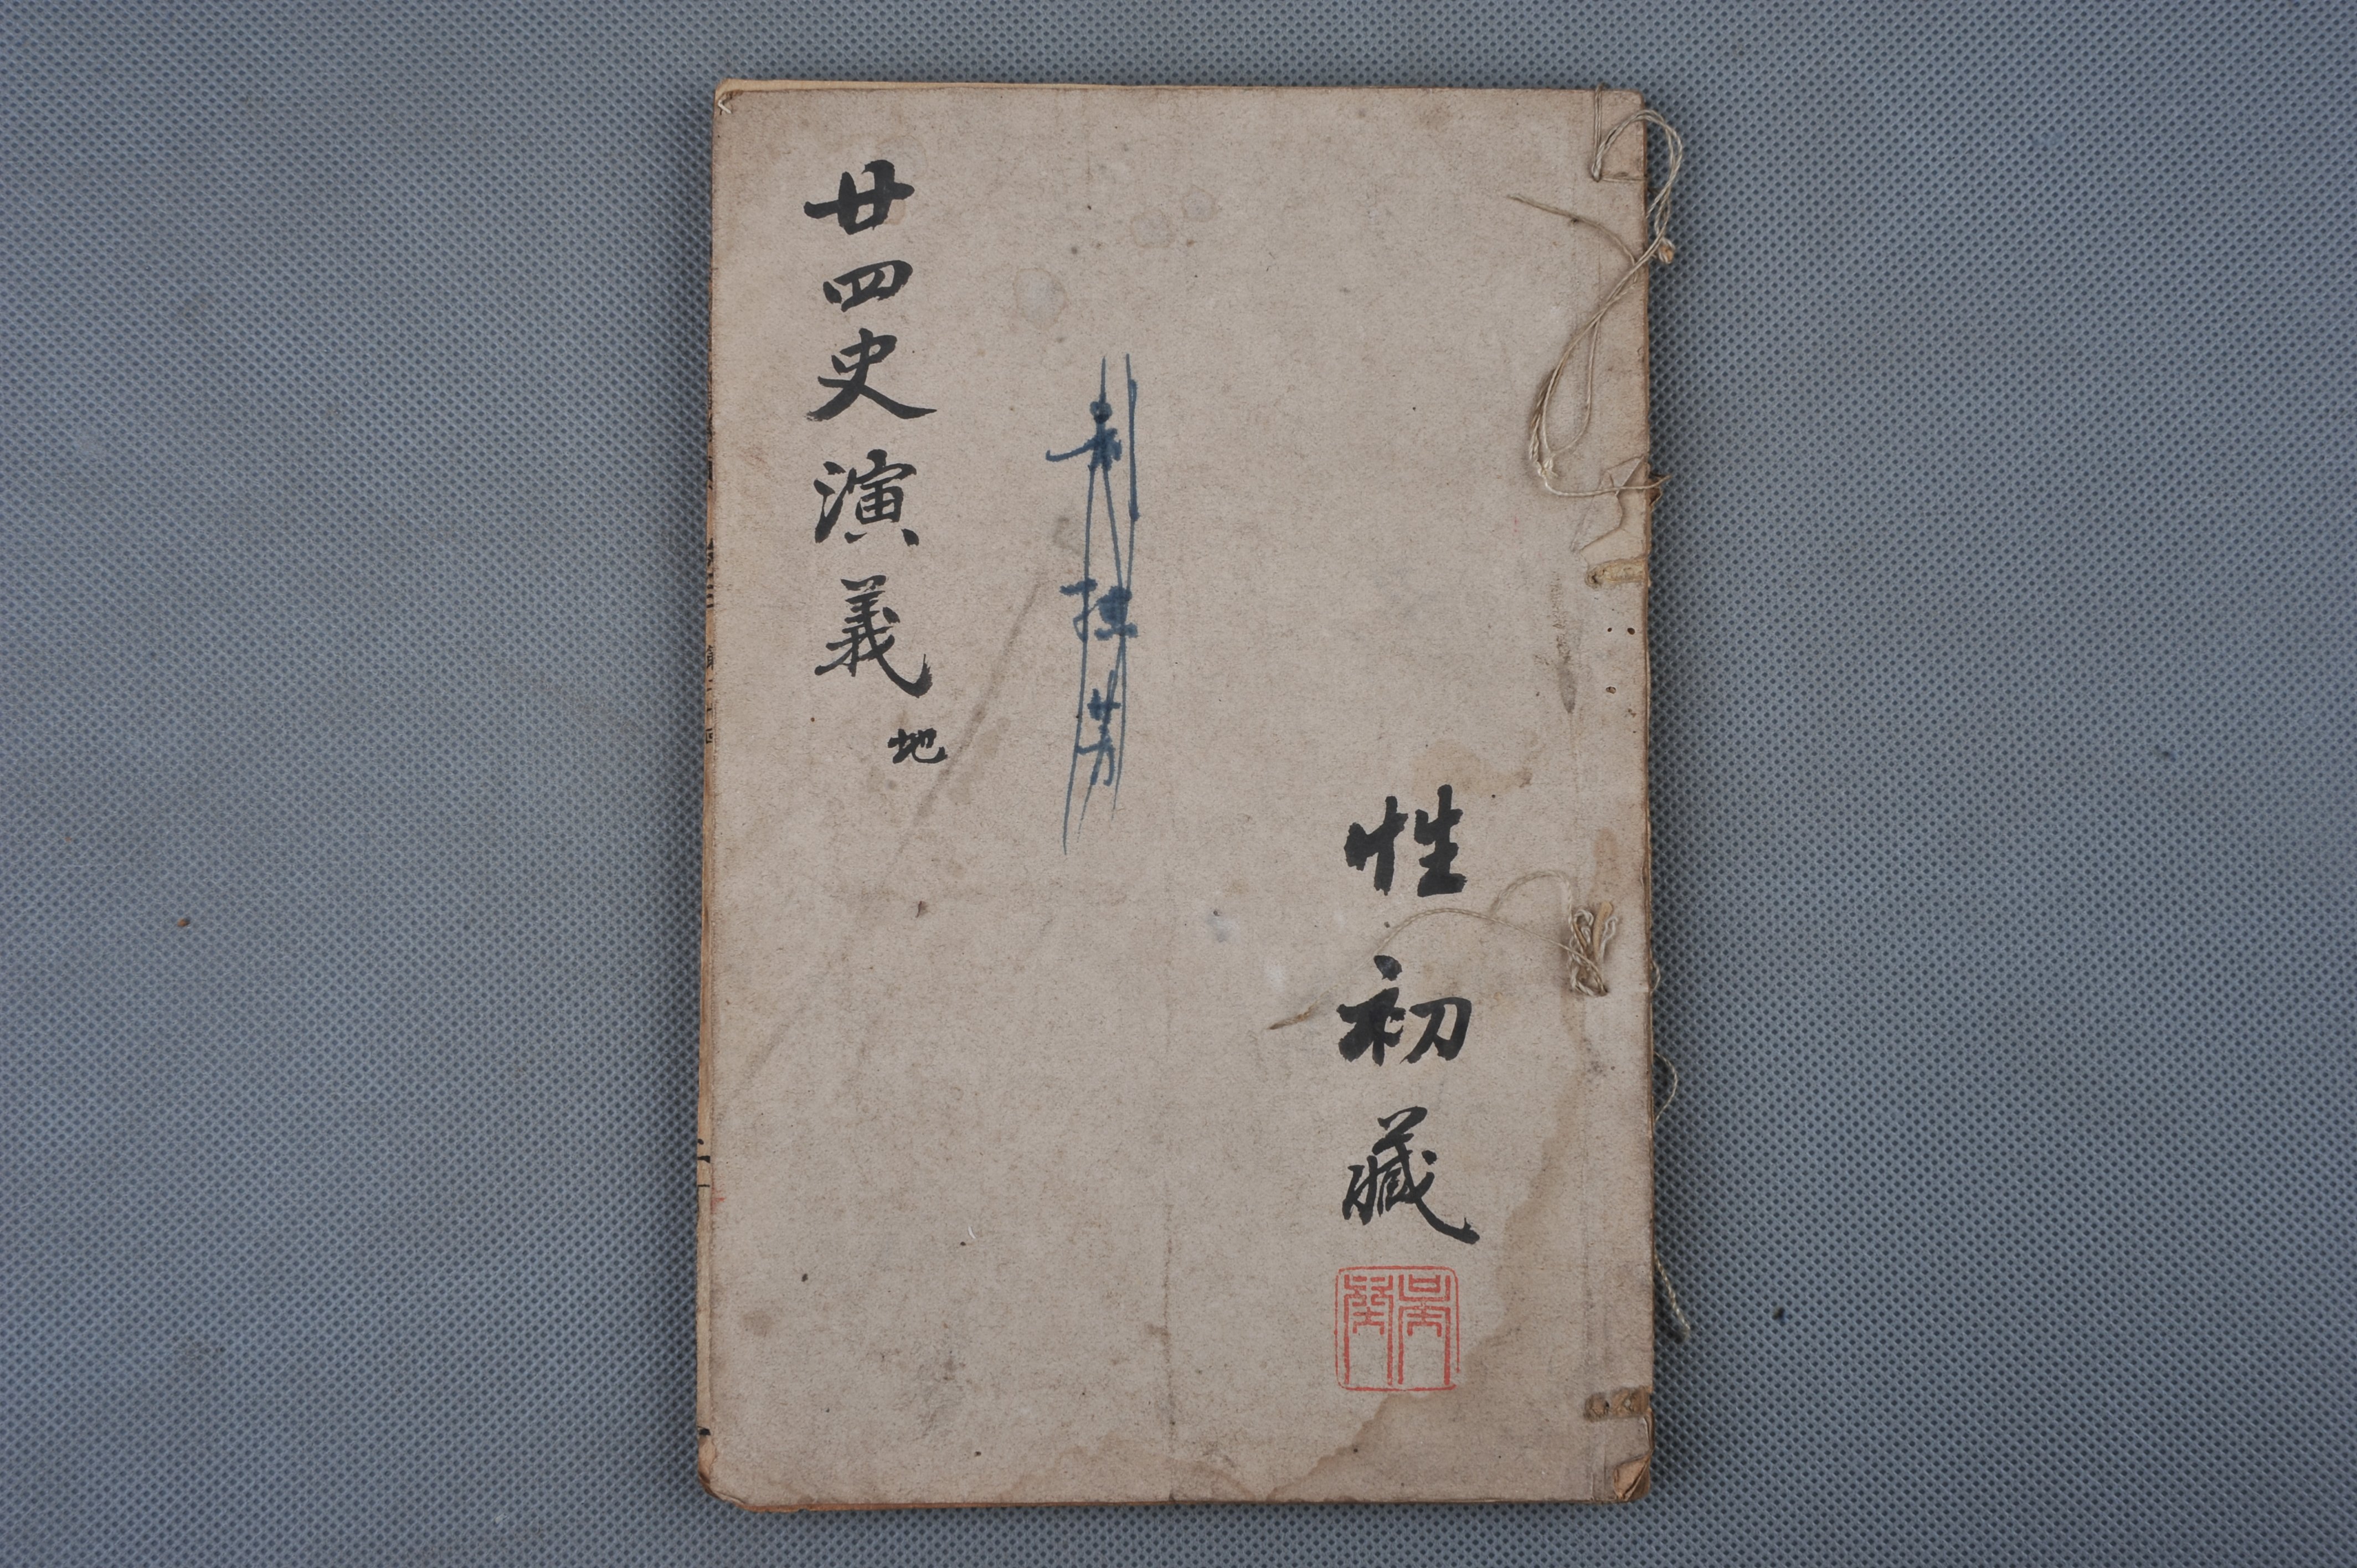 性初藏
廿四史演義 地